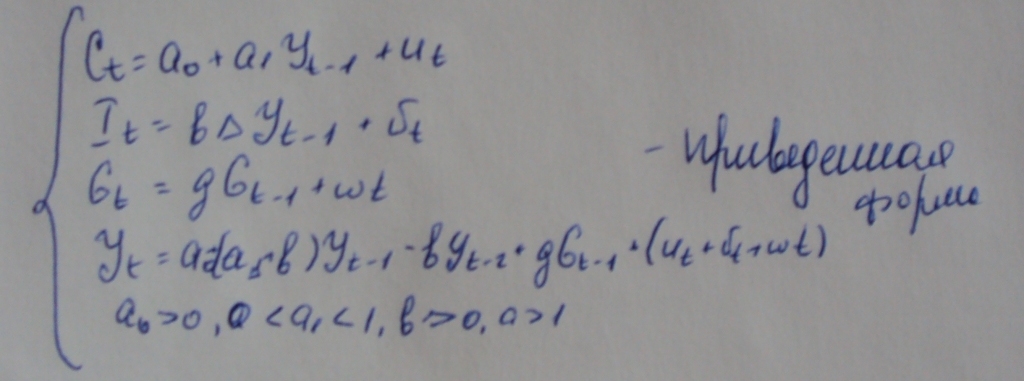 Ct = a₀ + a₁ Yt-1 + ut
It = в Δ Yt-1 + σt
Gt = gGt-1 + ωt
Yt = a + (a₁ + в) Yt-1 - вYt-2 + gGt-1 + (ut + σt + ωt)
a₀ > 0, 0 < a₁ < 1, в > 0, a > 1
- приведенная
форма